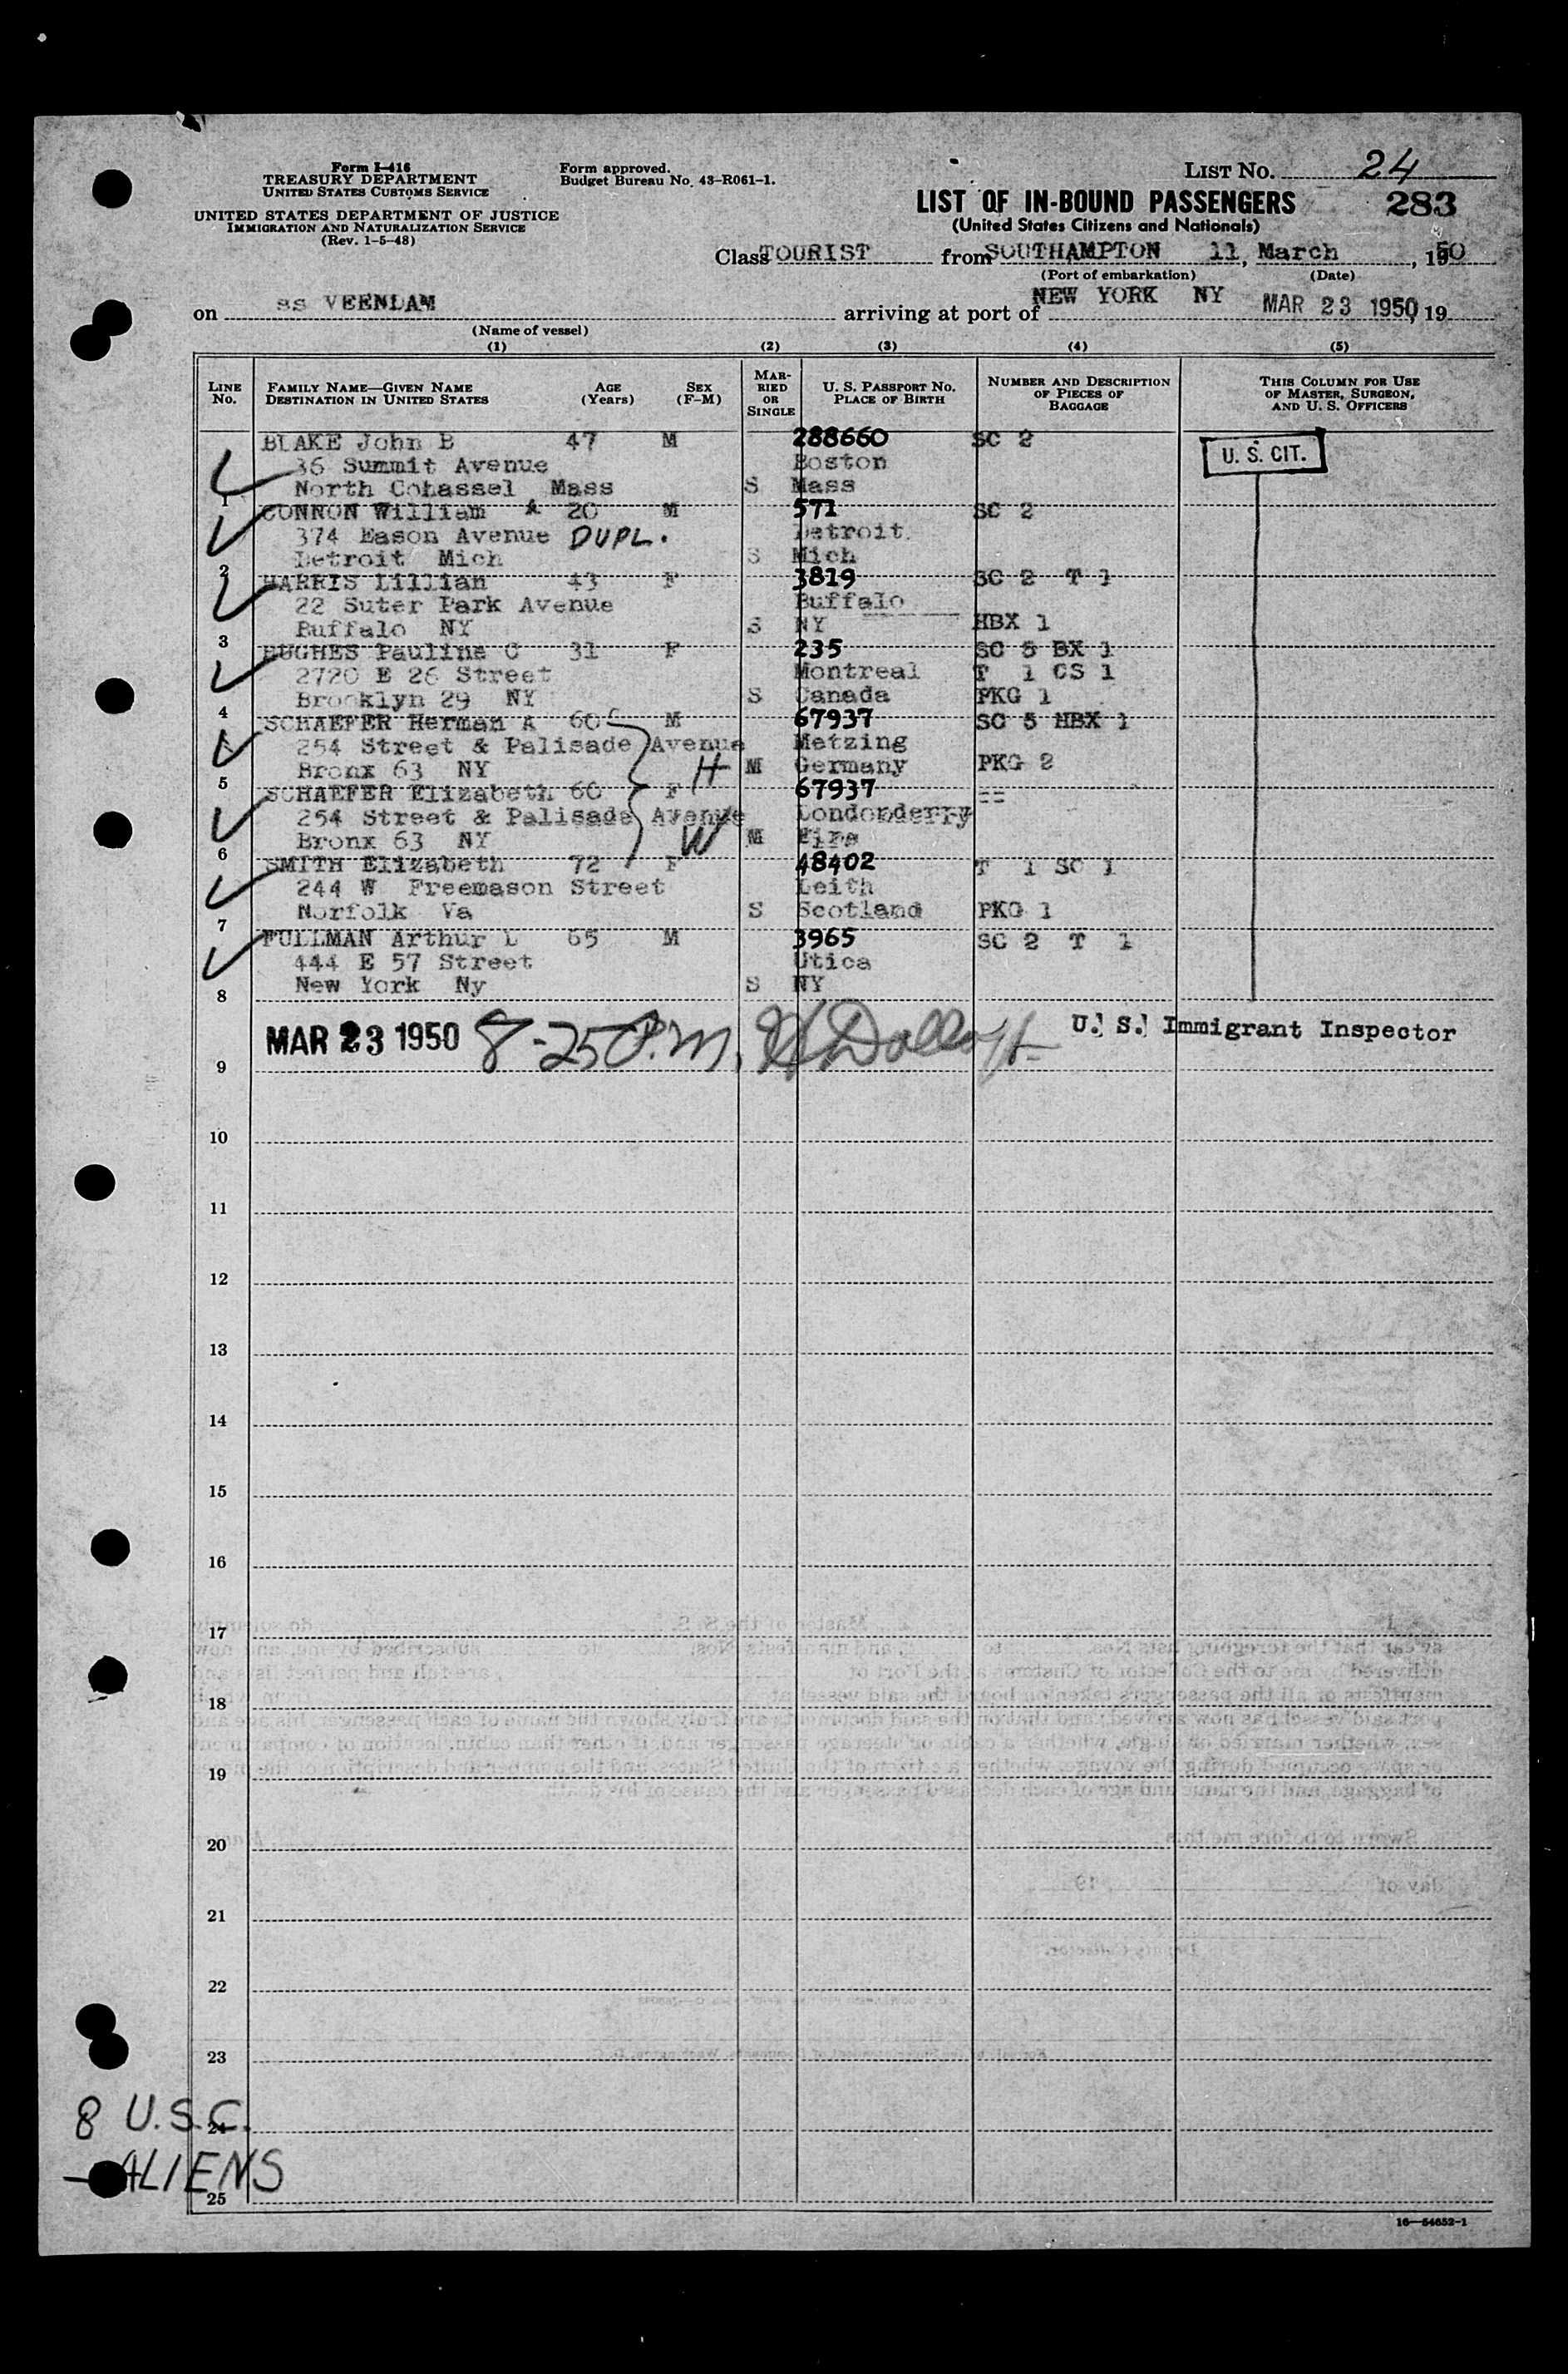 Form I-416
TREASURY DEPARTMENT
UNITED STATES CUSTOMS SERVICE
UNITED STATES DEPARTMENT OF JUSTICE
IMMIGRATION AND NATURALIZATION SERVICE
(Rev. 1-5-48)
Form approved.
Budget Bureau No. 43-R061-1.
LIST NO. 24
LIST OF IN-BOUND PASSENGERS 283
(United States Citizens and Nationals)
Class TOURIST from SOUTHAMPTON 11, March, 1950
(Port of embarkation) (Date)
on ss VEENDAM arriving at port of NEW YORK NY MAR 23 1950, 19
(Name of vessel)
(1) (2) (3) (4) (5)
LINE NO. FAMILY NAME—GIVEN NAME DESTINATION IN UNITED STATES AGE (Years) SEX (F-M) MARRIED OR SINGLE U. S. PASSPORT NO. PLACE OF BIRTH NUMBER AND DESCRIPTION OF PIECES OF BAGGAGE THIS COLUMN FOR USE OF MASTER, SURGEON, AND U. S. OFFICERS
BLAKE John B 47 M 288660 SC 2
36 Summit Avenue Boston U. S. CIT.
1 North Cohassel Mass S Mass
CONNON William A 20 M 571 SC 2
374 Eason Avenue DUPL. Detroit
2 Detroit Mich S Mich
HARRIS Lillian 43 F 3819 SC 2 T 1
22 Suter Park Avenue Buffalo
3 Buffalo NY S NY HBX 1
HUGHES Pauline C 31 F 235 SC 5 BX 1
2720 E 26 Street Montreal T 1 CS 1
4 Brooklyn 29 NY S Canada PKG 1
SCHAEFER Herman A 60 M 67937 SC 5 HBX 1
254 Street & Palisade Avenue Metzing
5 Bronx 63 NY H M Germany PKG 2
SCHAEFER Elizabeth 60 F 67937 ==
254 Street & Palisade Avenue Londonderry
6 Bronx 63 NY W M Eire
SMITH Elizabeth 72 F 48402 T 1 SC 1
244 W Freemason Street Leith
7 Norfolk Va S Scotland PKG 1
TULLMAN Arthur L 65 M 3965 SC 2 T 1
444 E 57 Street Utica
8 New York Ny S NY
MAR 23 1950 8-25 P.M. U. S. Immigrant Inspector
9
10
11
12
13
14
15
16
17
18
19
20
21
22
23
8 U.S.C. 24
— ALIENS
25
16—54652-1